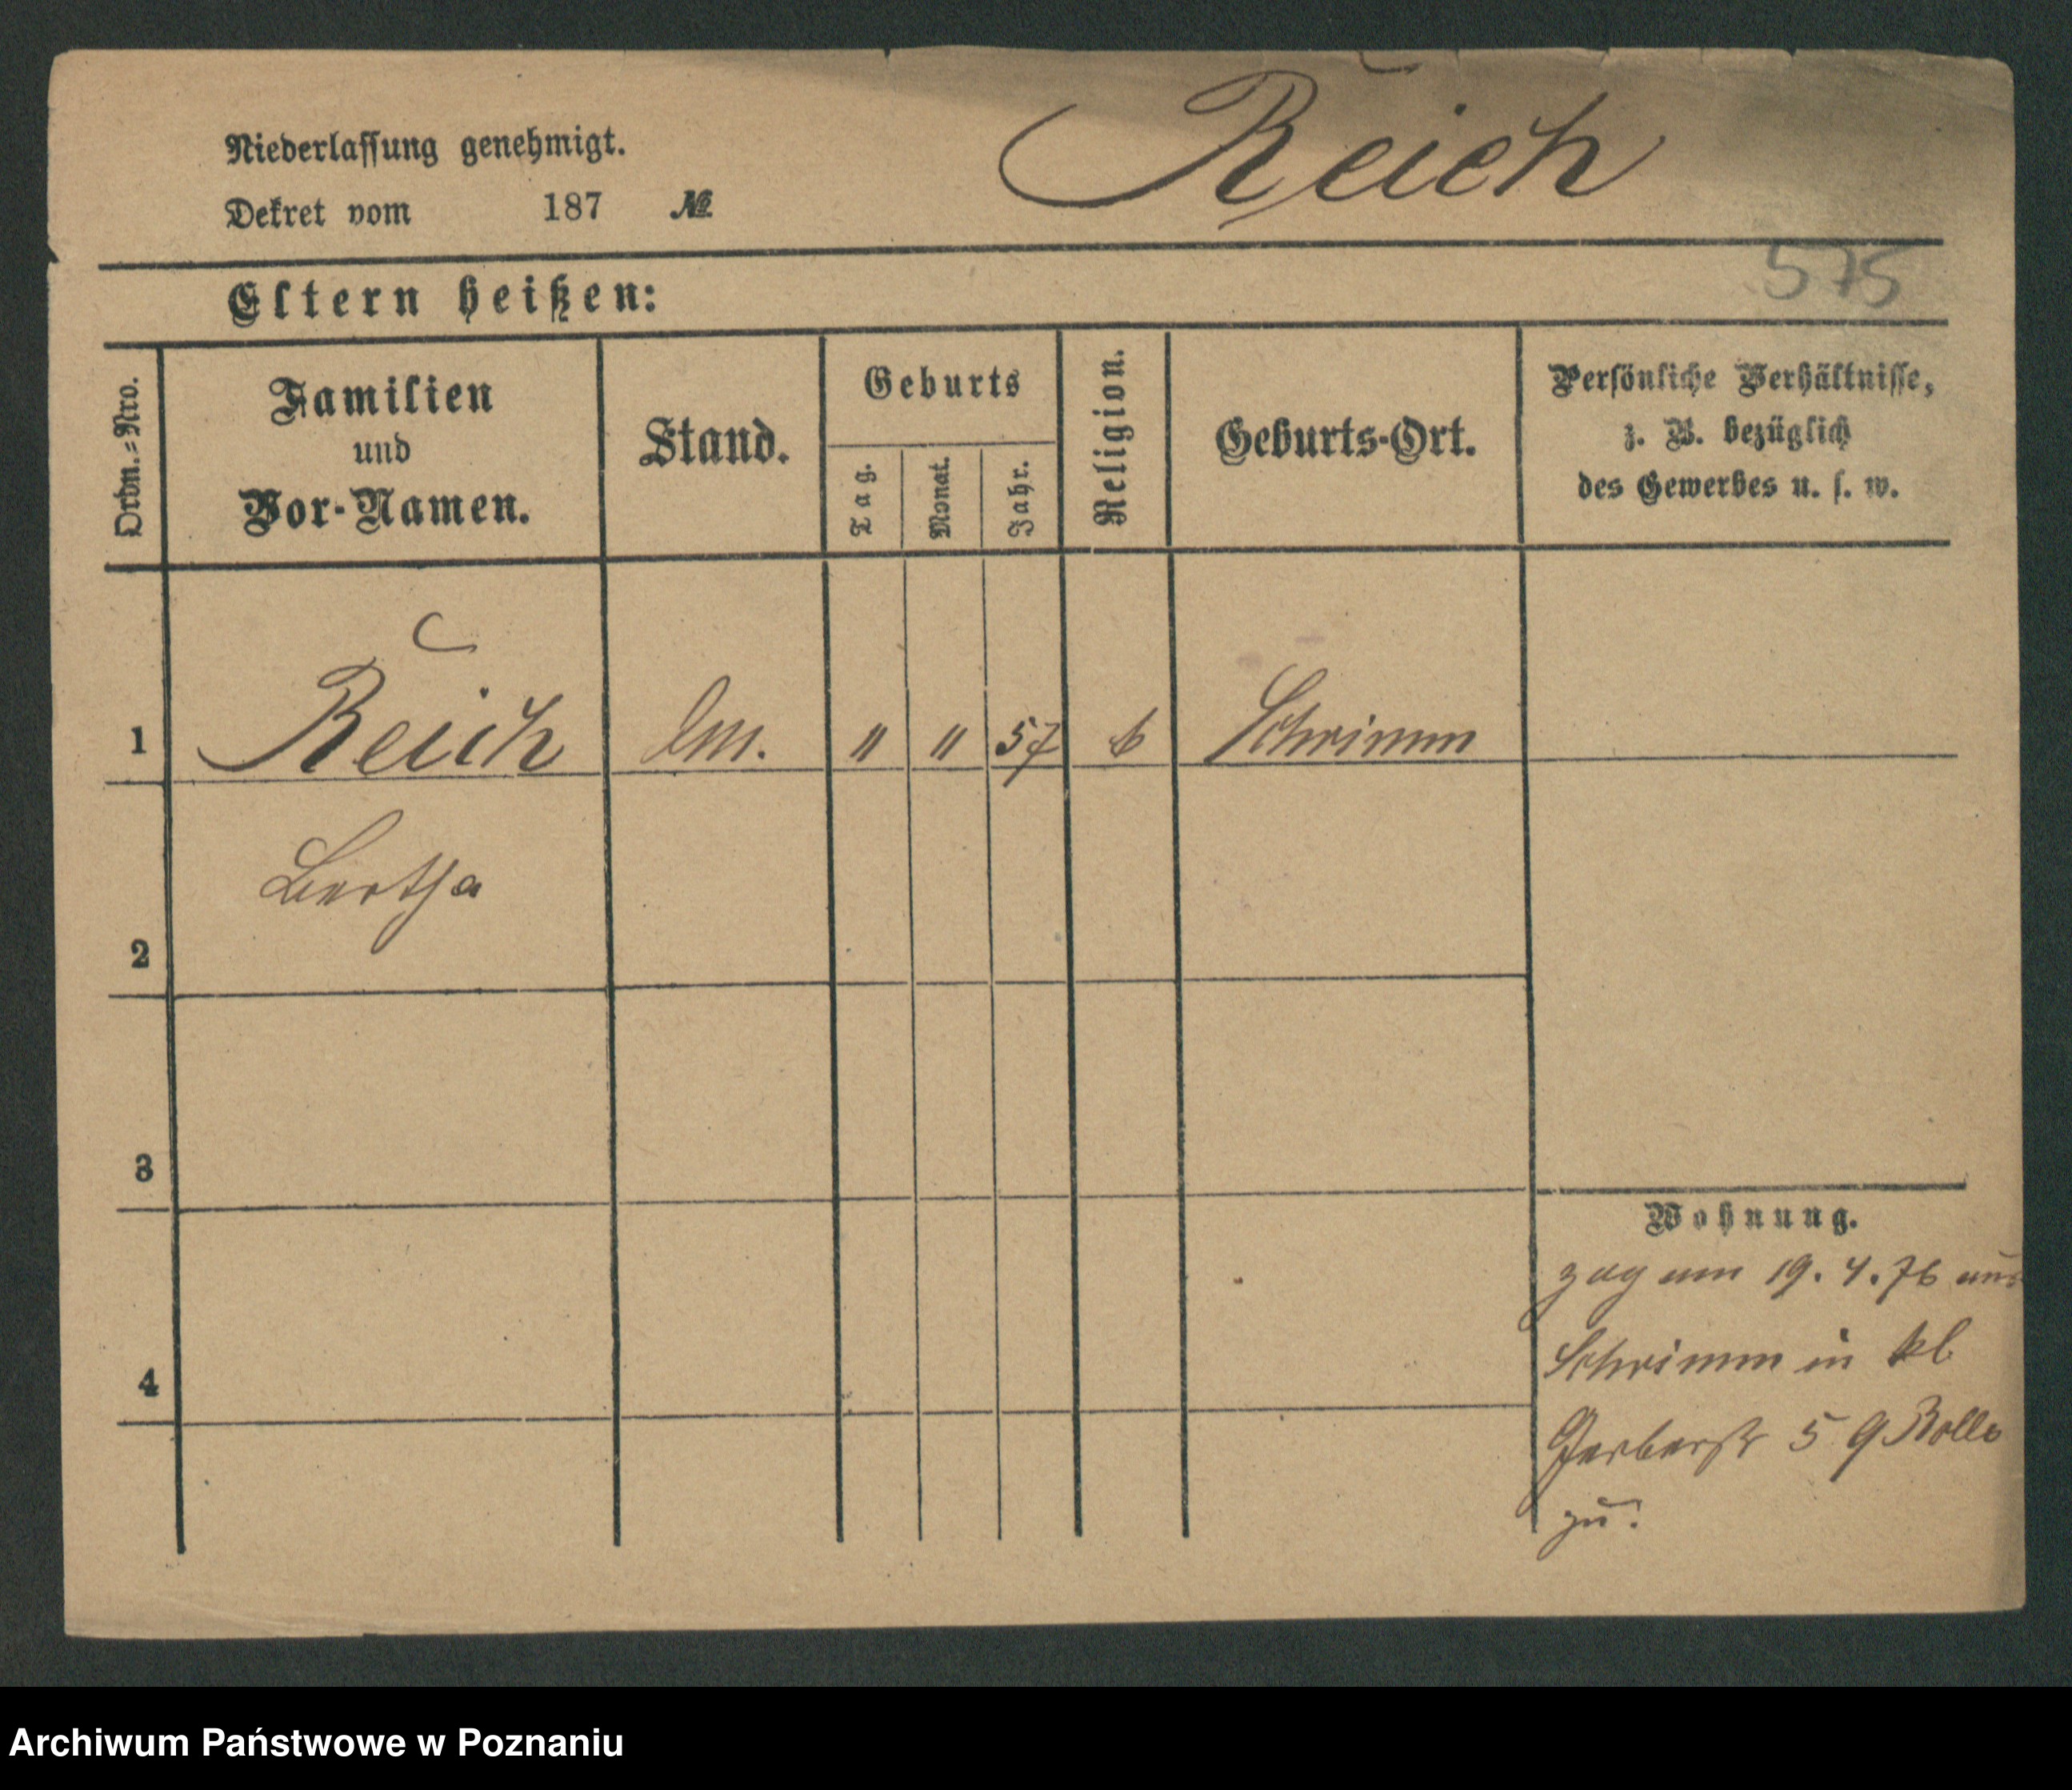 Reich
Niederlassung genehmigt.
Dekret vom 187 №
575
Eltern heißen:
Ordn.=Nro.
Familien
und
Vor-Namen.
Stand.
Geburts
Tag.
Monat.
Jahr.
Religion.
Geburts-Ort.
Persönliche Verhältnisse,
z. B. bezüglich
des Gewerbes u. s. w.
1 Reich " " 57 Schrimm
Bertha
2
3
4
Wohnung.
zog am 19. 4. 76 aus
Schrimm in kl
Gerberstr 5
zu.
Archiwum Państwowe w Poznaniu